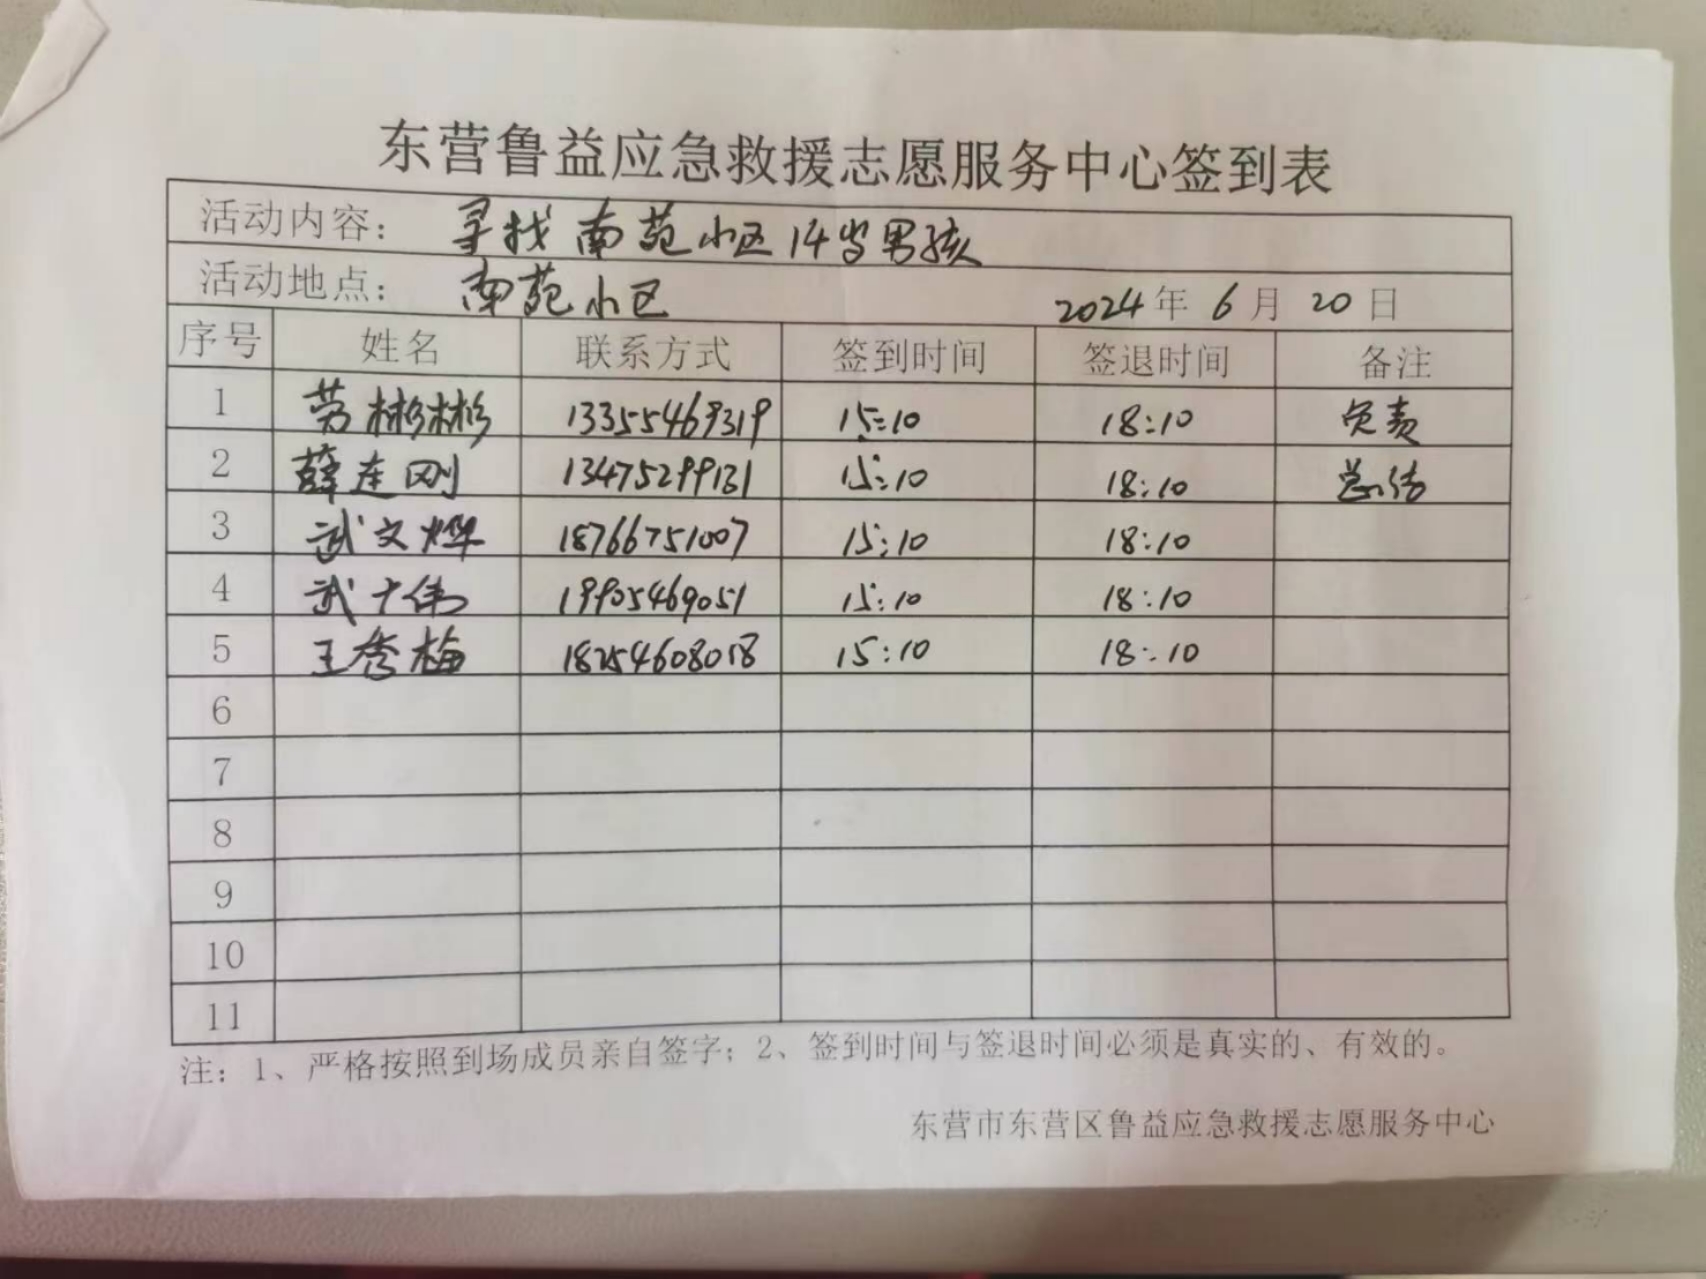 东营鲁益应急救援志愿服务中心签到表
活动内容： 寻找南苑小区14岁男孩
活动地点： 南苑小区 2024年6月20日
序号 姓名 联系方式 签到时间 签退时间 备注
1 劳彬彬 13355469319 15:10 18:10 负责
2 薛连刚 13475299131 15:10 18:10 总结
3 武文烨 18766751007 15:10 18:10
4 武十伟 19905469051 15:10 18:10
5 王秀梅 18254608018 15:10 18:10
6
7
8
9
10
11
注：1、严格按照到场成员亲自签字；2、签到时间与签退时间必须是真实的、有效的。
东营市东营区鲁益应急救援志愿服务中心